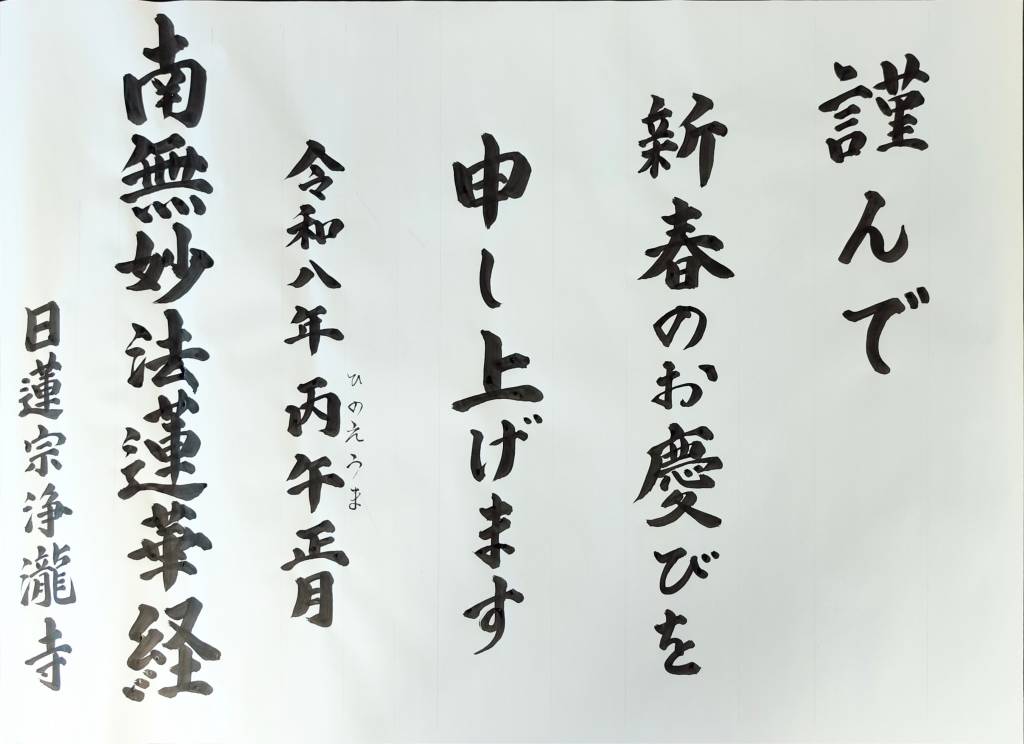 謹んで
新春のお慶びを
申し上げます
令和八年丙午正月
ひのえうま
南無妙法蓮華経
日蓮宗浄瀧寺